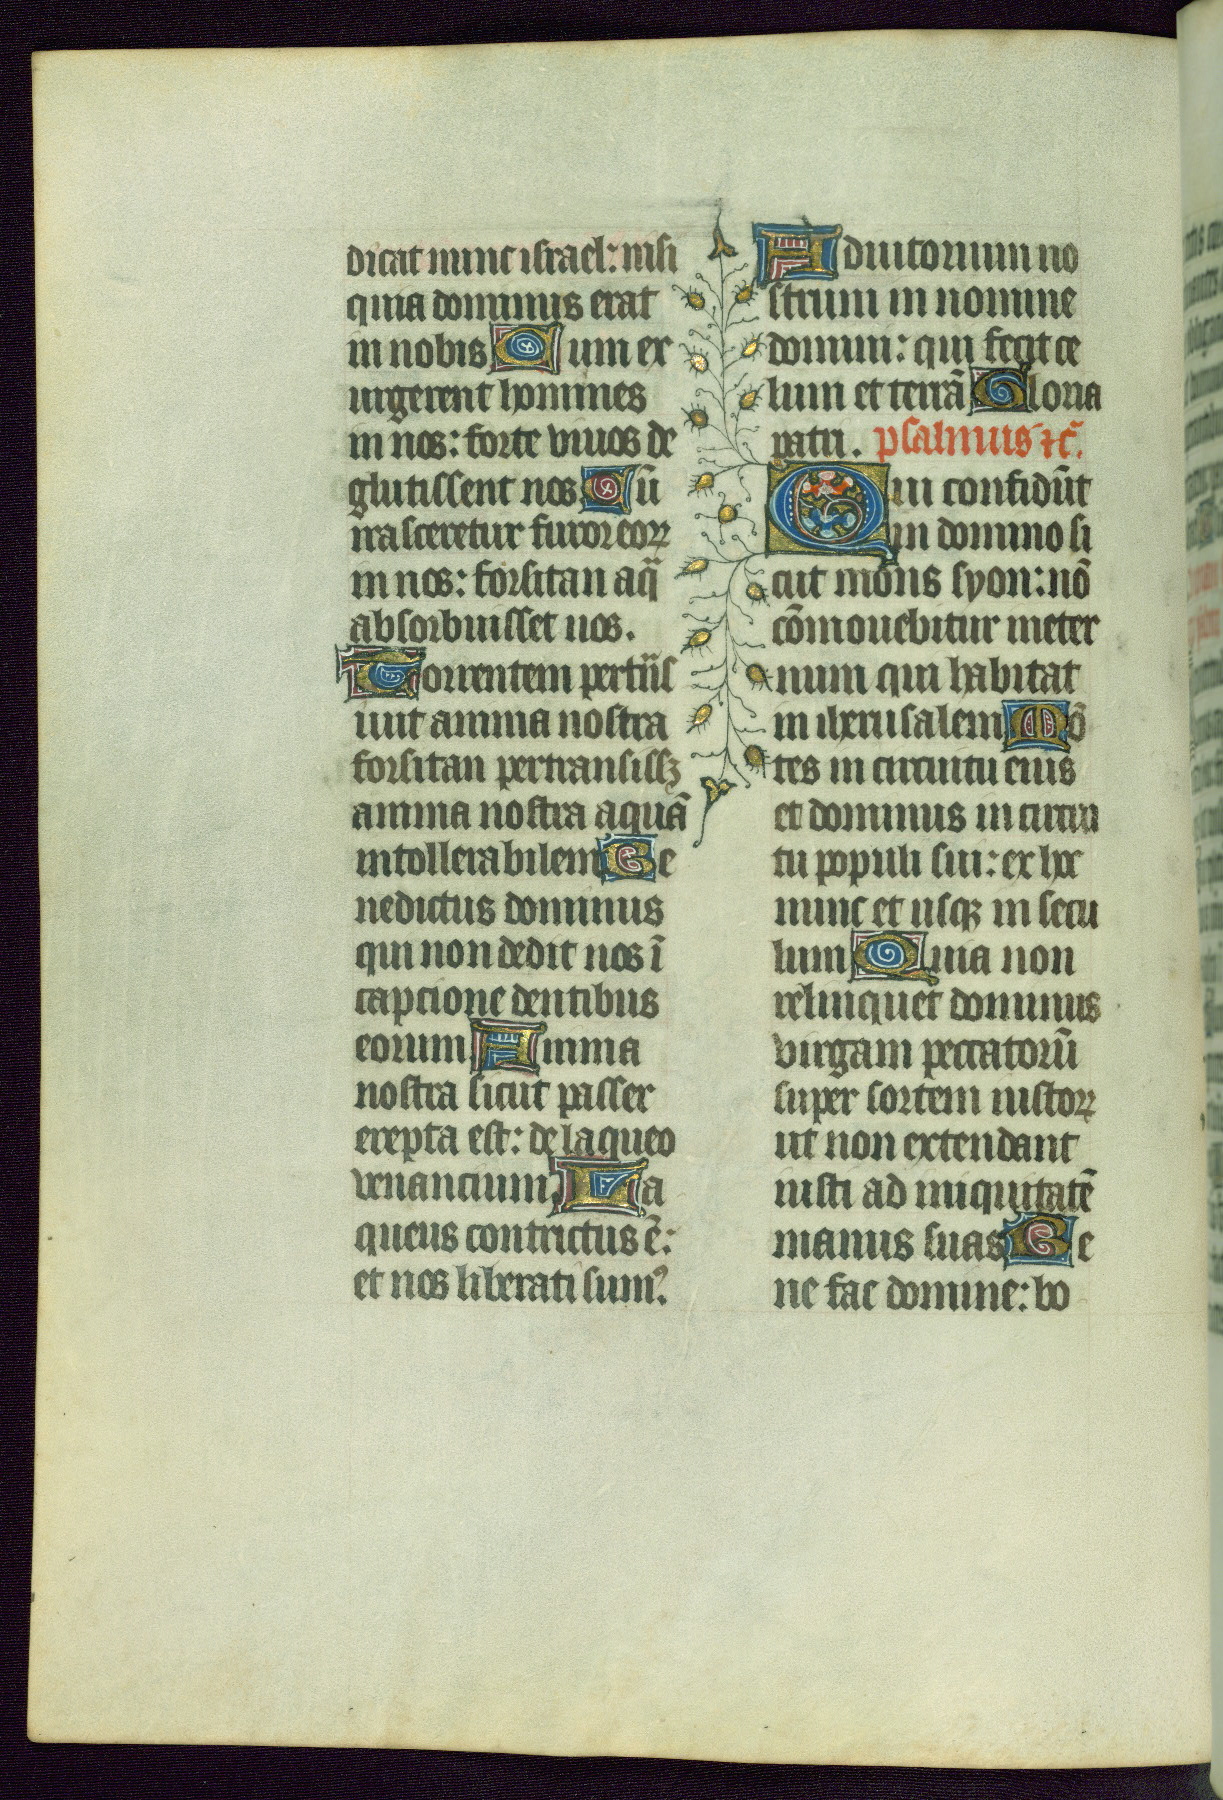 dicat nunc israel: nisi
quia dominus erat
in nobis Cum ex
urgerent homines
in nos: forte viuos de
glutissent nos Cū
irasceretur furor eorꝝ
in nos: forsitan aqͣ̄
absorbuisset nos.
Torrentem pertñs
iuit anima nostra
forsitan pertransissꝫ
anima nostra aquā
intollerabilem Be
nedictus dominus
qui non dedit nos ī
captione dentibus
eorum Anima
nostra sicut passer
erepta est: de laqueo
venancium La
queus contrictus ē:
et nos liberati sumꝰ.
Adiutorium no
strum in nomine
domini: qui fecit ce
lum et terrā Gloria
patri. psalmus ⁊c̄.
Qui confidūt
in domino si
cut mons syon: nō
cōmouebitur ineter
num qui habitat
in iherusalem Mō
tes in circuitu eius
et dominus in circui
tu populi sui: ex hoc
nunc et usqꝫ in secu
lum Quia non
relinquet dominus
virgam peccatorū
super sortem iustorꝝ
ut non extendant
iusti ad iniquitatē
manus suas Be
ne fac domine: bo